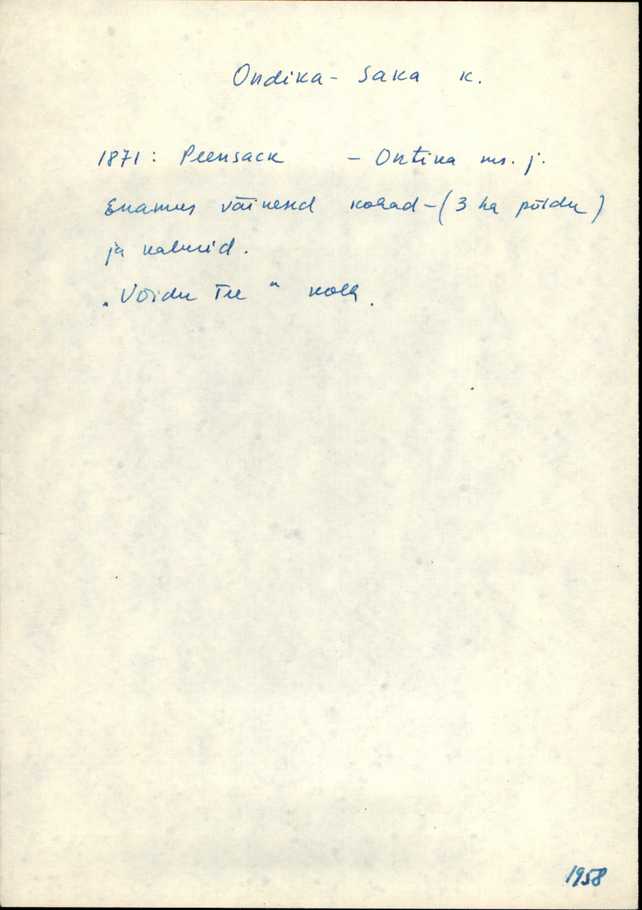 Ondika-Saka k.
1871: Peensack - Ontika ms. j.
Enamus väikesed kohad - (3 ha põldu)
ja kalurid.
„Võidu Tee" kolh.
1958